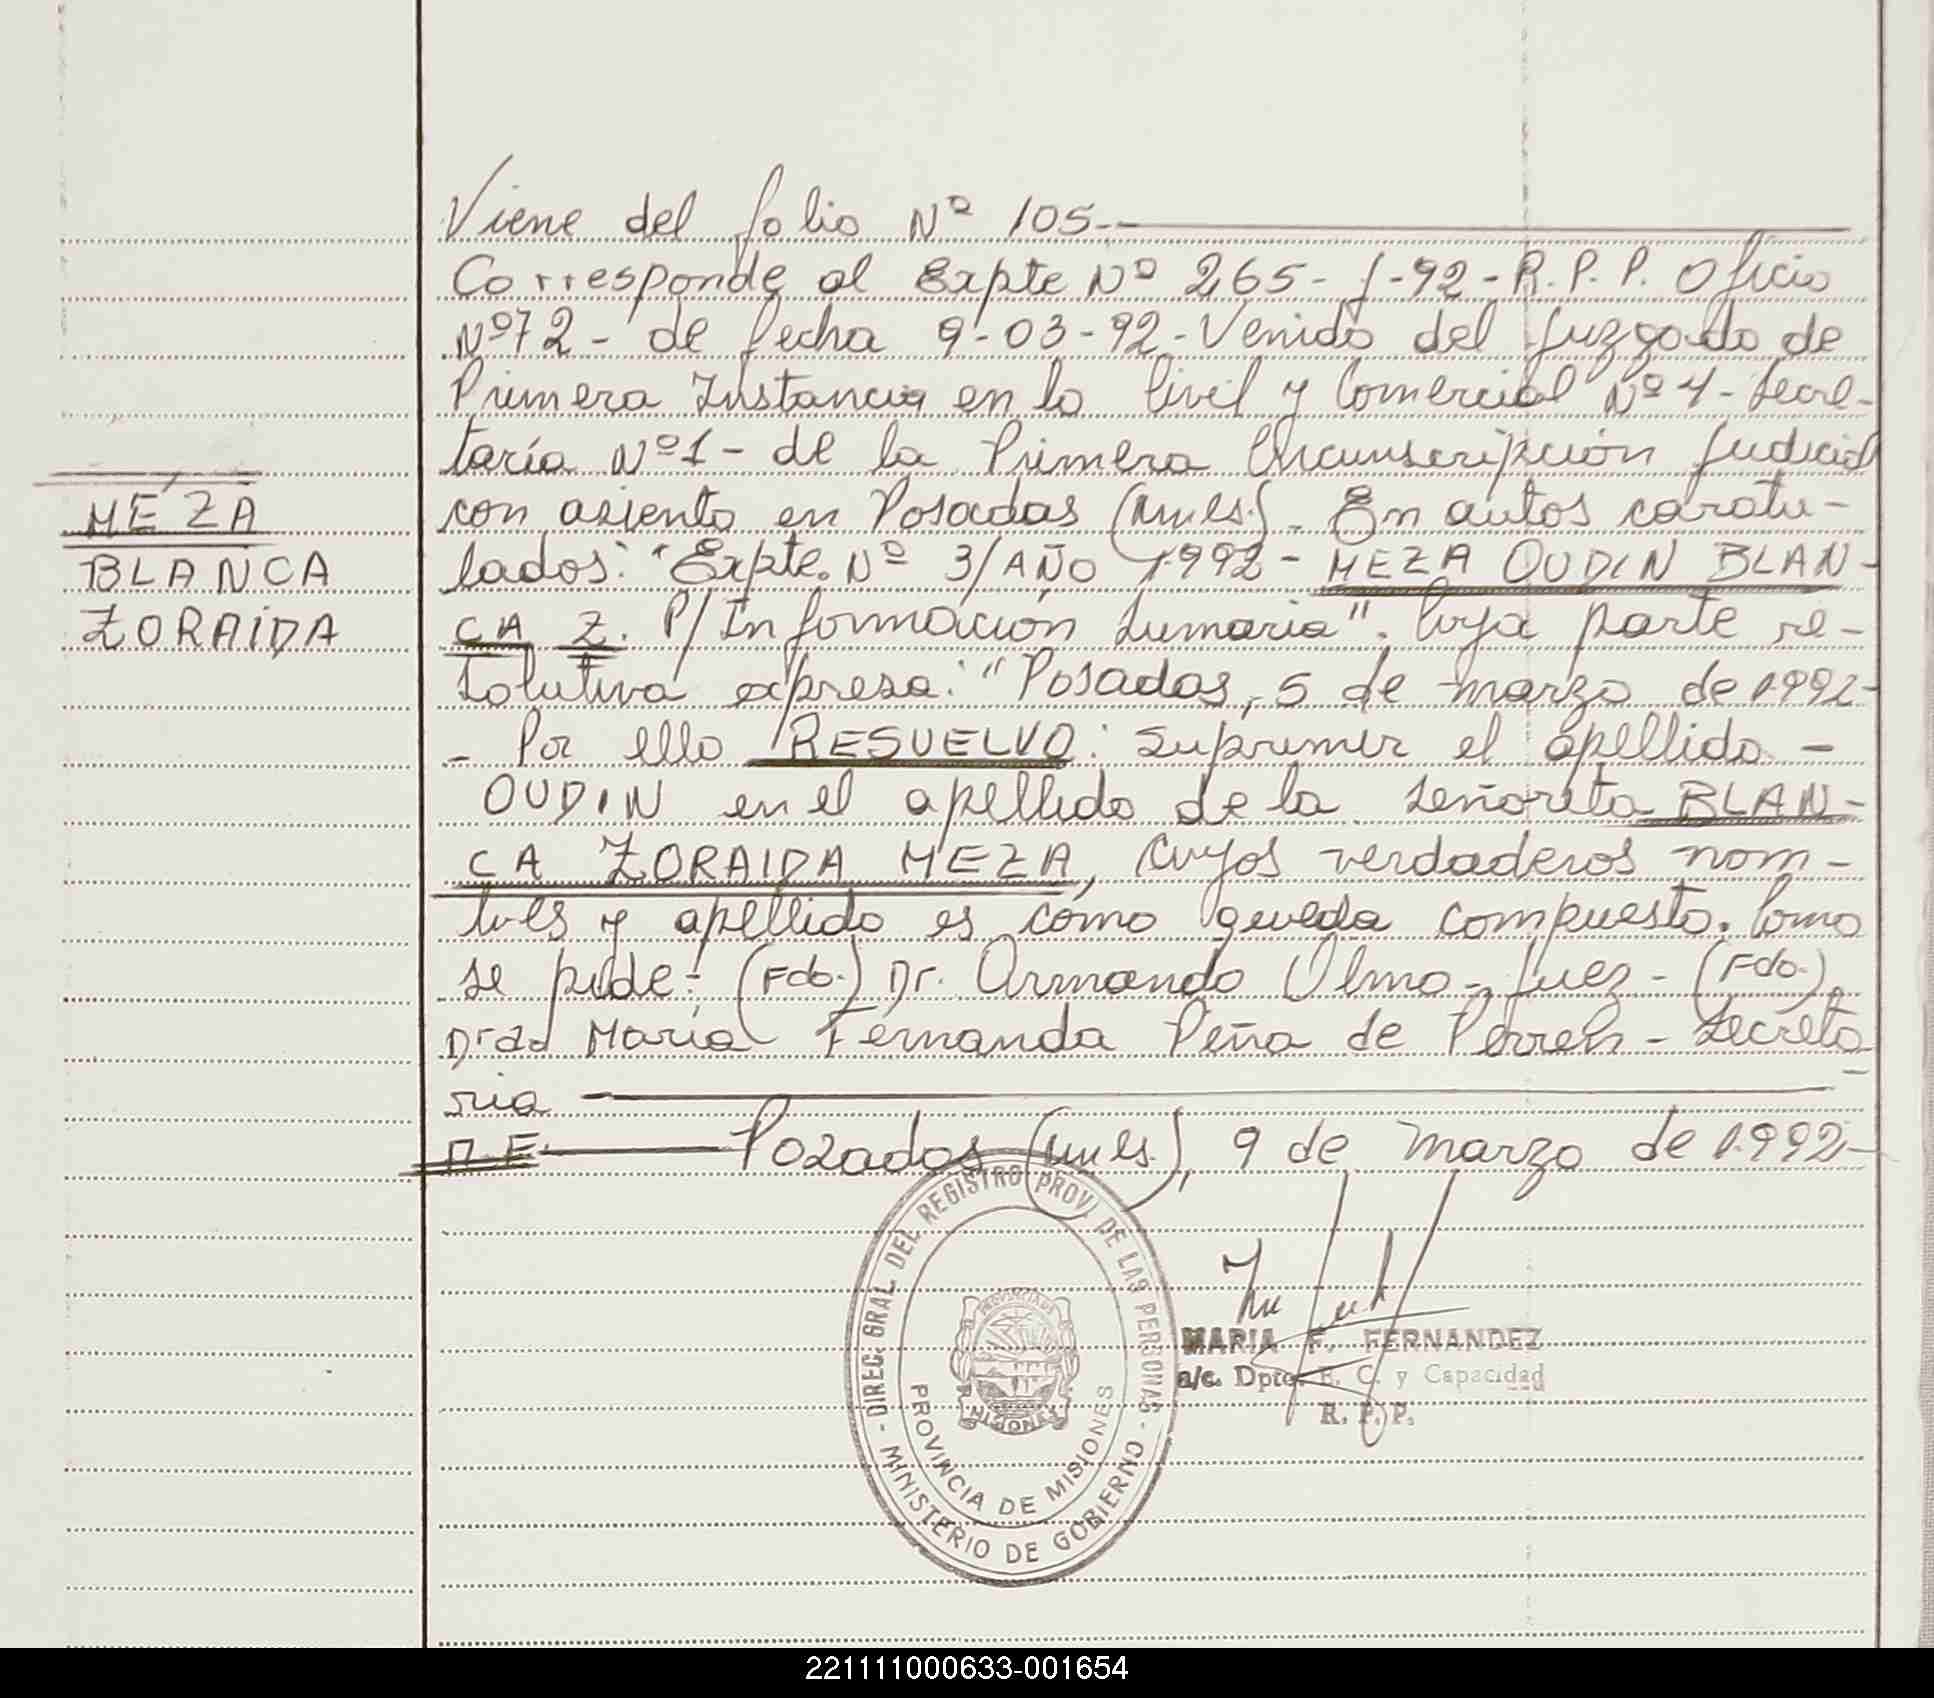 Viene del folio Nº 105.-
Corresponde al Expte Nº 265-J-92-R.P.P. Oficio
Nº 72- de fecha 9-03-92-Venido del Juzgado de
Primera Instancia en lo Civil y Comercial Nº 4- Secre-
taría Nº 1- de la Primera Circunscripción Judicial
con asiento en Posadas (Mnes). En autos caratu-
lados: "Expte. Nº 3/AÑO 1.992- MEZA OUDIN BLAN-
CA Z. P/Información Sumaria". Cuya parte re-
solutiva expresa: "Posadas, 5 de marzo de 1.992-
- Por ello RESUELVO: Suprimir el apellido -
OUDIN en el apellido de la señorita BLAN-
CA ZORAIDA MEZA, cuyos verdaderos nom-
bres y apellido es cómo queda compuesto. Como
se pide: (Fdo.) Dr. Armando Olmo - Juez - (Fdo.)
Dra. María Fernanda Peña de - Secreta-
ria
Posadas (Mnes.), 9 de marzo de 1.992-
MEZA
BLANCA
ZORAIDA
- DIREC. GRAL. DEL REGISTRO PROV. DE LAS PERSONAS -
MINISTERIO DE GOBIERNO
PROVINCIA DE MISIONES
PROVINCIA DE
MISIONES
MARIA F. FERNANDEZ
a/c. Dpto. E. C. y Capacidad
R. P. P.
221111000633-001654